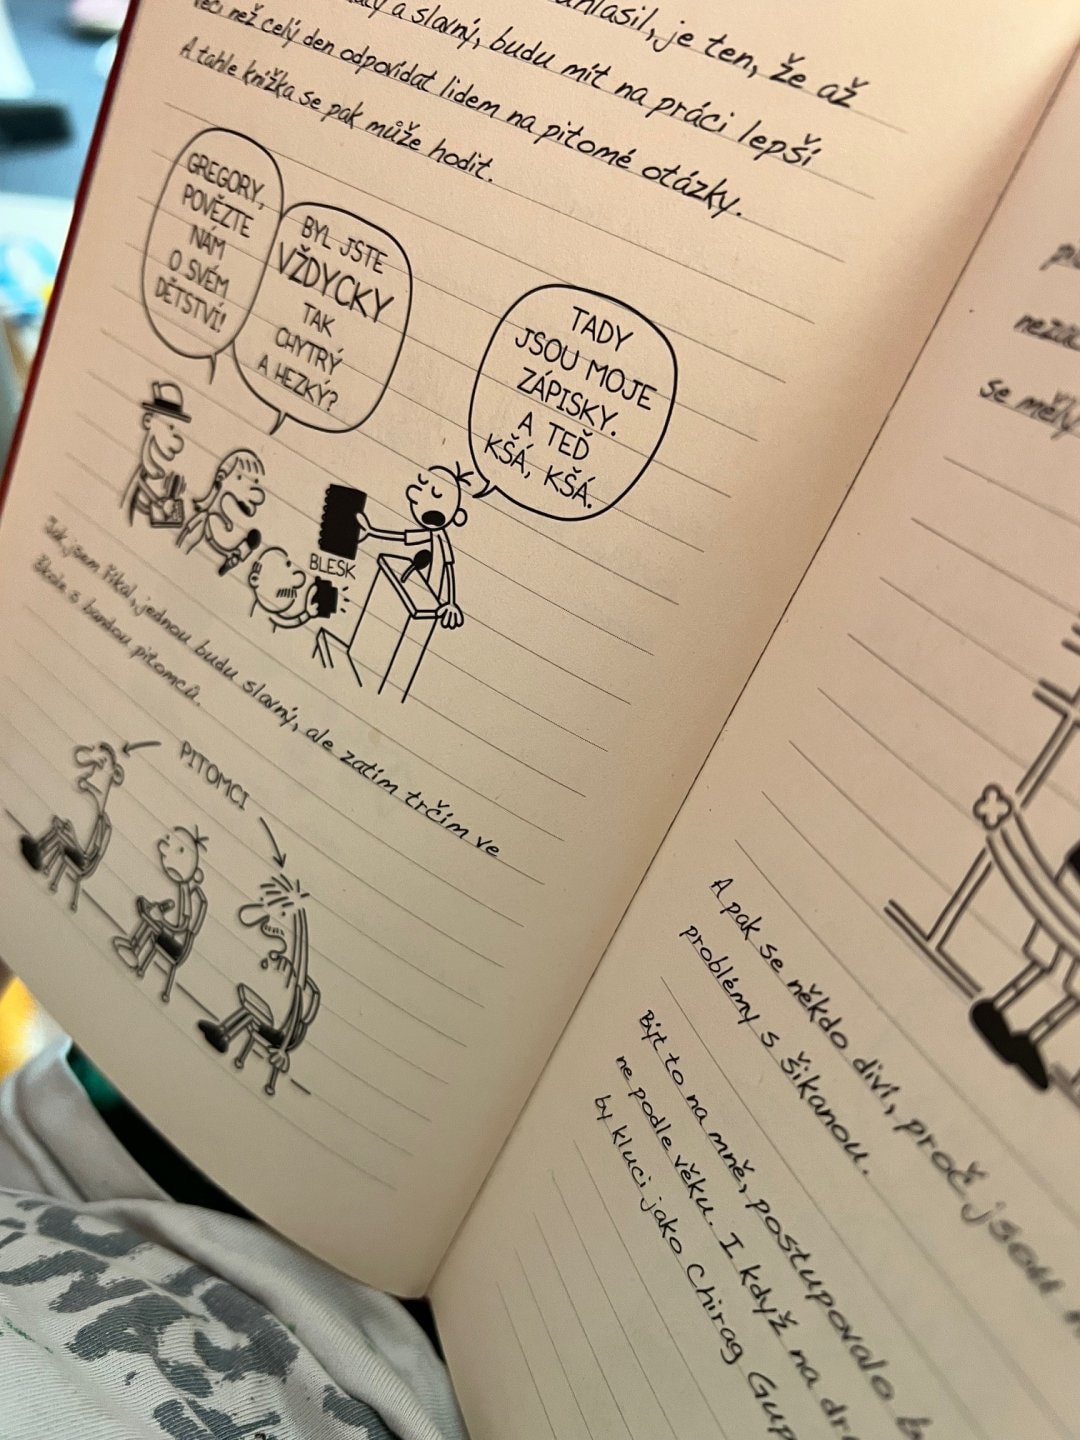 je ten, že až
a slavný, budu mít na práci lepší
než celý den odpovídat lidem na pitomé otázky.
A tahle knížka se pak může hodit.
GREGORY,
POVĚZTE
NÁM
O SVÉM
DĚTSTVÍ!
BYL JSTE
VŽDYCKY
TAK
CHYTRÝ
A HEZKÝ?
TADY
JSOU MOJE
ZÁPISKY.
A TEĎ
KŠÁ, KŠÁ.
BLESK
Jak jsem říkal, jednou budu slavný, ale zatím trčím ve
škole s bandou pitomců.
PITOMCI
se měly
A pak se někdo diví, proč jsou
problémy s šikanou.
Být to na mně, postupovalo
ne podle věku. I když na
by kluci jako Chirag